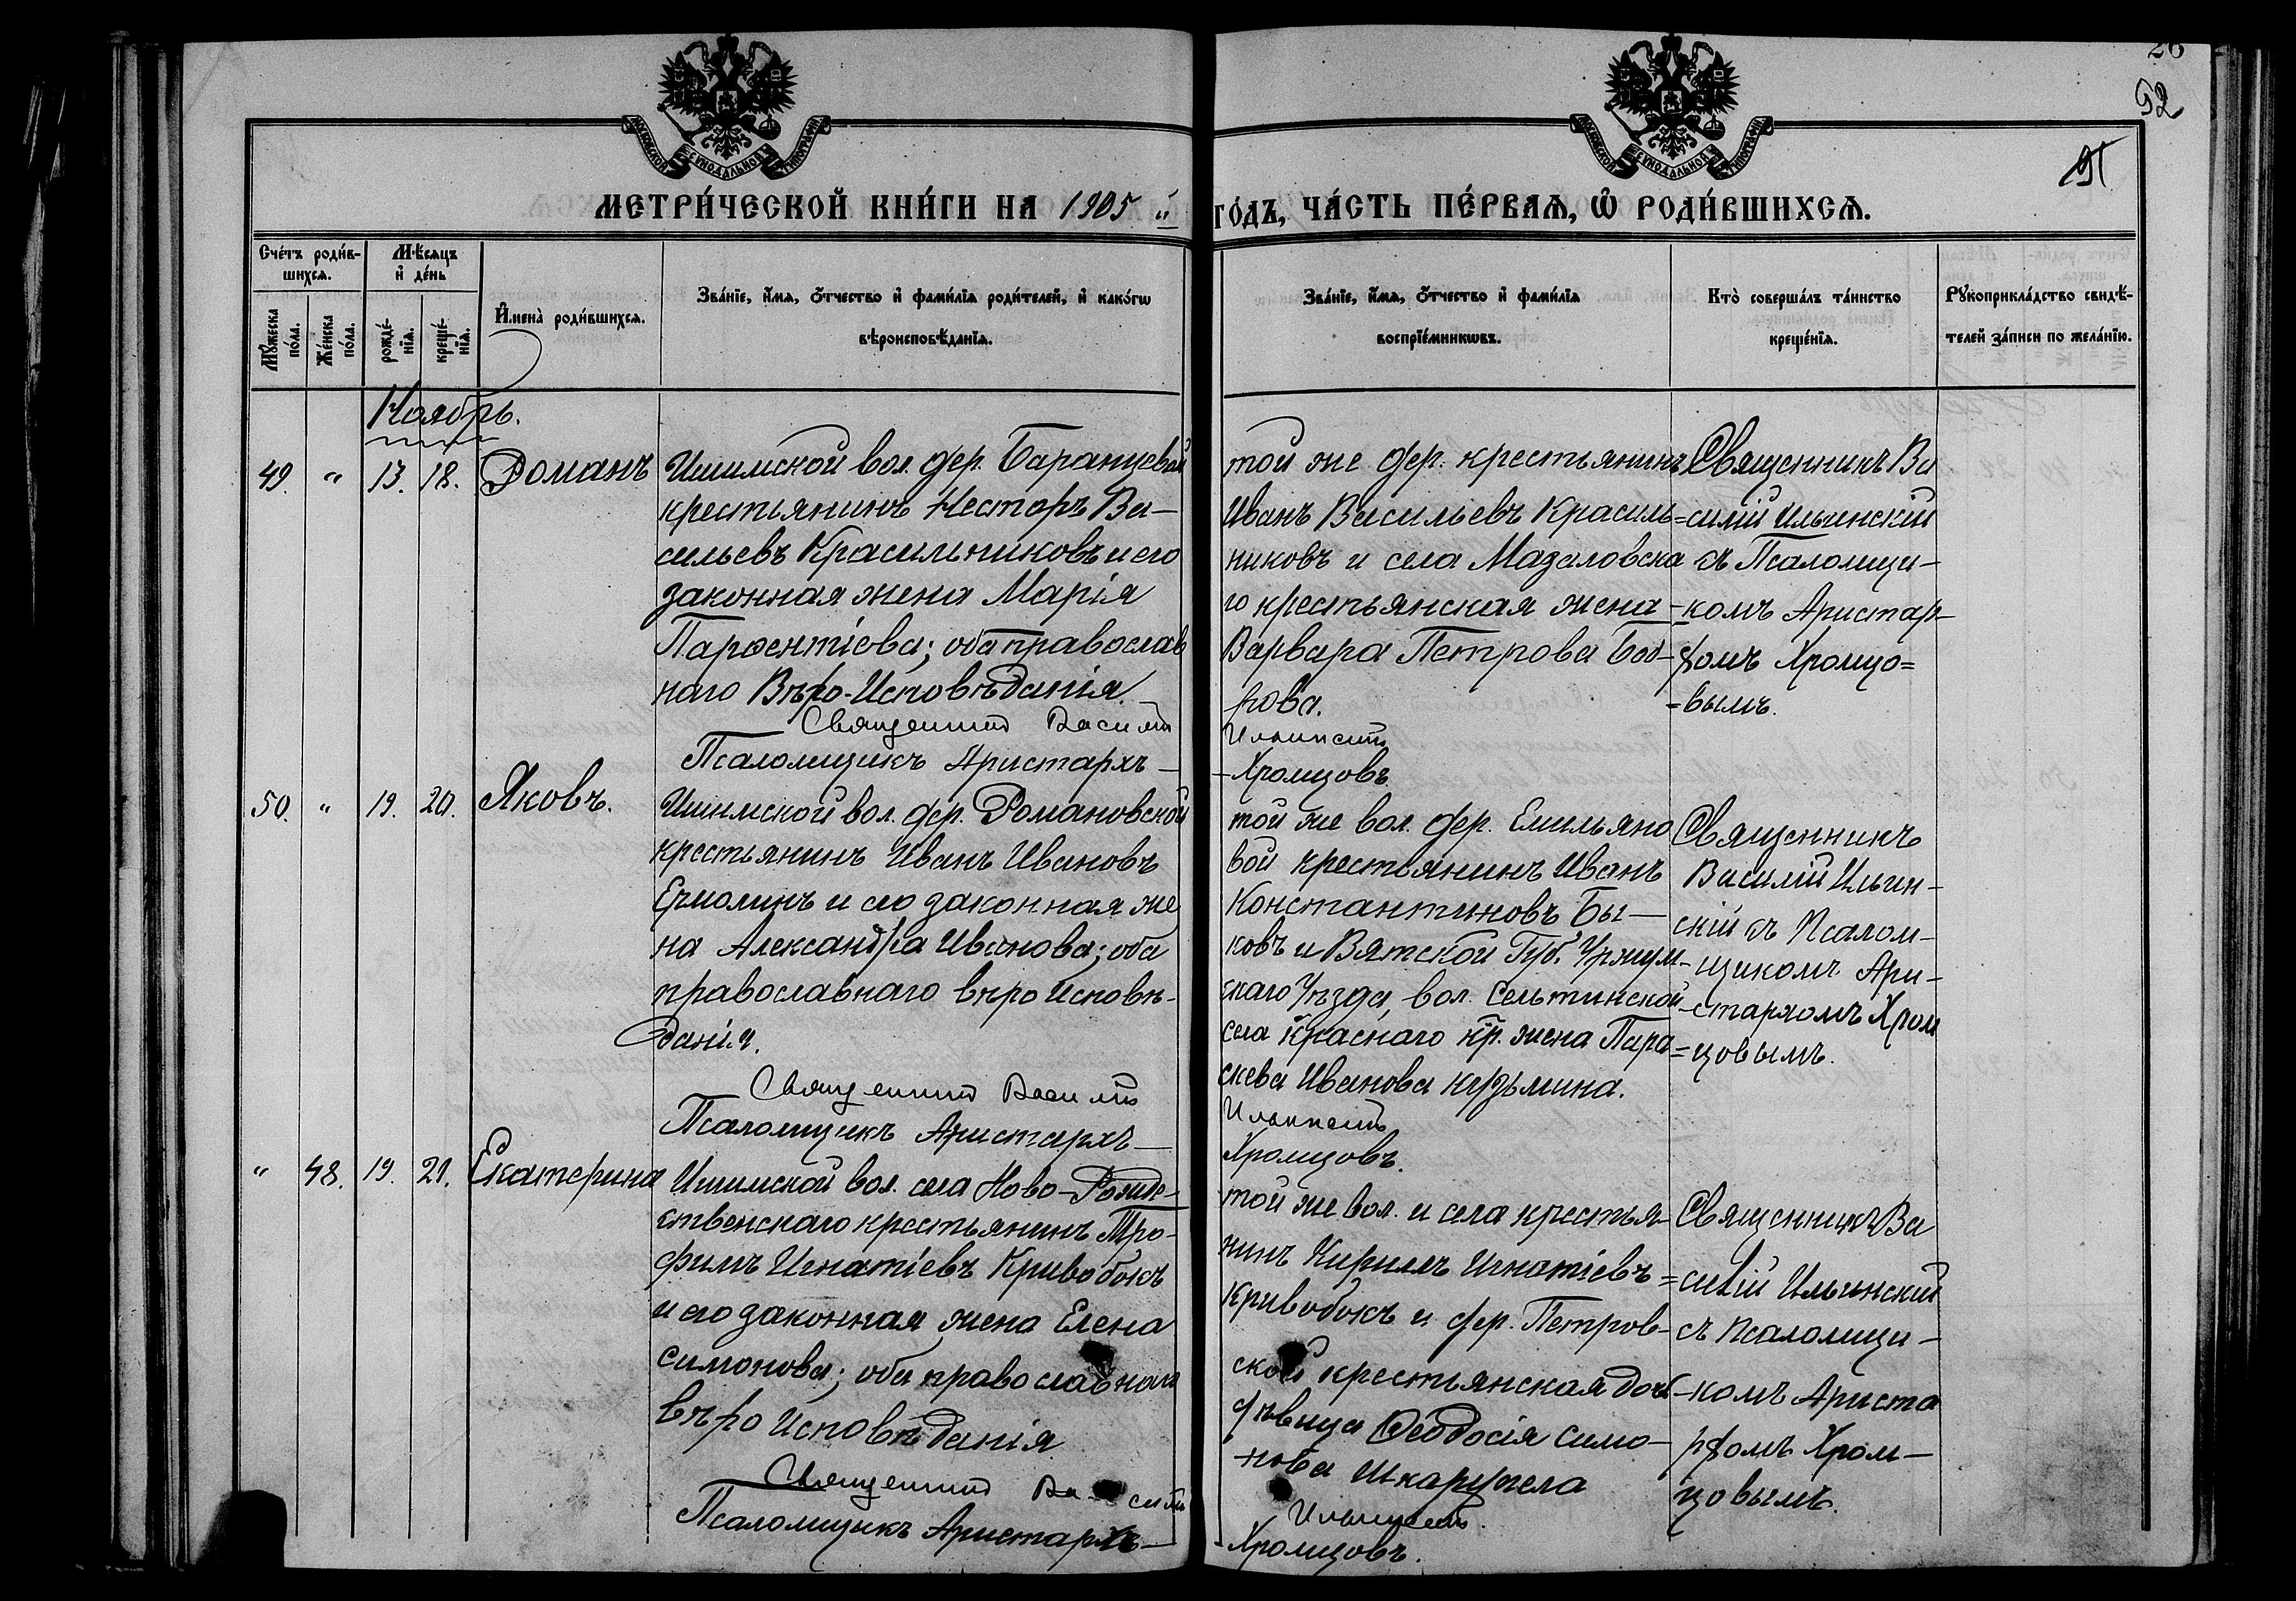 26
92
91
МОСКОВСКОЙ СѴНОДАЛЬНОЙ ТИПОГРАФІИ
МОСКОВСКОЙ СѴНОДАЛЬНОЙ ТИПОГРАФІИ
МЕТРИ́ЧЕСКОЙ КНИ́ГИ НА 1905 й ГО́ДЪ, ЧА́СТЬ ПЕ́РВАѦ, Ѡ РОДИ́ВШИХСѦ.
Сче́тъ роди́в-
шихсѧ.
Му́жеска по́ла.
Же́нска по́ла.
Мѣ́сѧцъ
и҆ де́нь
рожде́-
нїѧ.
креще́-
нїѧ.
И҆мена̀ роди́вшихсѧ.
Зва́нїе, и҆́мѧ, ѻ҆́тчество и҆ фами́лїѧ роди́телей, и҆ како́гѡ
вѣроисповѣ́данїѧ.
Зва́нїе, и҆́мѧ, ѻ҆́тчество и҆ фами́лїѧ
воспрїе́мникѡвъ.
Кто̀ соверша́лъ та́инство
креще́нїѧ.
Рꙋкоприкла́дство свидѣ́-
телей за́писи по жела́нїю.
Ноябрь.
49. " 13. 18. Романъ
Ишимской вол. дер. Баранцевой
крестьянинъ Несторъ Ва-
сильевъ Красильниковъ и его
законная жена Марія
Парѳентіева; оба православ
наго Вѣро-Исповѣданія.
Священникъ Василій
Псаломщикъ Аристархъ -
той же дер. крестьянинъ
Иванъ Васильевъ Красиль=
никовъ и села Мазаловска
го крестьянская жена -
Варвара Петрова Боб-
рова.
Ильинскій
- Хромцовъ.
Священникъ Ва
силій Ильинскій
съ Псаломщи-
комъ Аристар-
хомъ Хромцо=
=вымъ.
50. " 19. 20. Яковъ.
Ишимской вол. дер. Романовской
крестьянинъ Иванъ Ивановъ
Ермолинъ и его законная же
на Александра Иванова; оба
православнаго вѣро Исповѣ-
данія.
Священникъ Василій
Псаломщикъ Аристархъ -
той же вол. дер. Емильяно
вой крестьянинъ Иванъ
Константиновъ Бы-
ковъ и Вятской Губ. Уржум-
скаго Уѣзда, вол. Сельтинской
села Краснаго кр. жена Пара=
скева Иванова Кузьмина.
Ильинскій
Хромцовъ.
Священникъ
Василій Ильин-
скій съ Псалом-
щикомъ Ари-
-стархомъ Хром
цовымъ.
" 48. 19. 21. Екатерина
Ишимской вол. села Ново-Рожде-
ственскаго крестьянинъ Тро-
фимъ Игнатіевъ Кривобокъ
и его законная жена Елена
Симонова; оба православнаго
вѣро Исповѣданія
Священникъ Василій
Псаломщикъ Аристархъ -
той же вол. и села крестья-
нинъ Кириллъ Игнатіевъ=
Кривобокъ и дер. Петров-
ской крестьянская дочь
дѣвица Ѳеодосія Симо-
нова Шкарупела
Ильинскій.
- Хромцовъ.
Священникъ Ва
силій Ильинскій
съ Псаломщи-
-комъ Ариста
рхомъ Хром-
цовымъ.